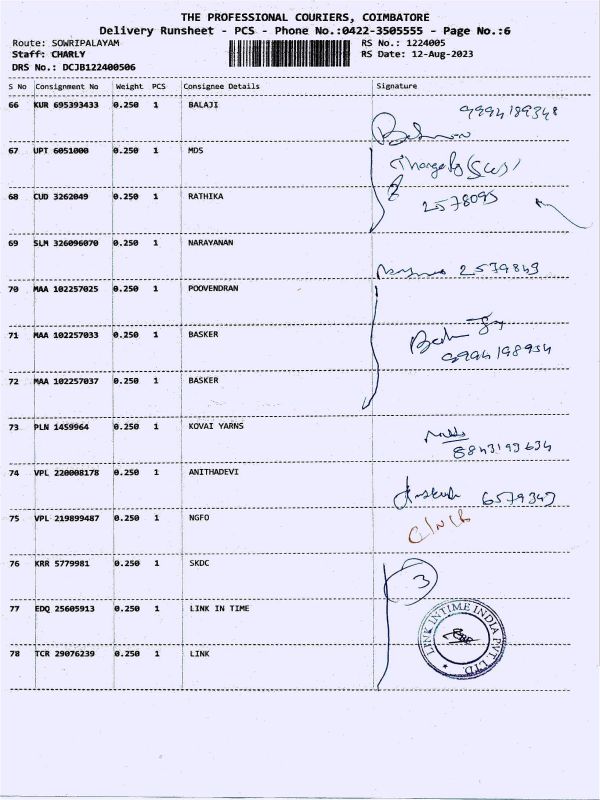 THE PROFESSIONAL COURIERS, COIMBATORE
Delivery Runsheet - PCS - Phone No.:0422-3505555 - Page No.:6
Route: SOWRIPALAYAM RS No.: 1224005
Staff: CHARLY RS Date: 12-Aug-2023
DRS No.: DCJB122400506
S No Consignment No Weight PCS Consignee Details Signature
66 KUR 695393433 0.250 1 BALAJI
67 UPT 6051000 0.250 1 MDS
68 CUD 3262049 0.250 1 RATHIKA
2578095
69 SLM 326096070 0.250 1 NARAYANAN
2579849
70 MAA 102257025 0.250 1 POOVENDRAN
71 MAA 102257033 0.250 1 BASKER
9994198934
72 MAA 102257037 0.250 1 BASKER
73 PLN 1459964 0.250 1 KOVAI YARNS
8843193634
74 VPL 220008178 0.250 1 ANITHADEVI
6579349
75 VPL 219899487 0.250 1 NGFO
76 KRR 5779981 0.250 1 SKDC
3
77 EDQ 25605913 0.250 1 LINK IN TIME
78 TCR 29076239 0.250 1 LINK
LINK INTIME INDIA PVT. LTD.